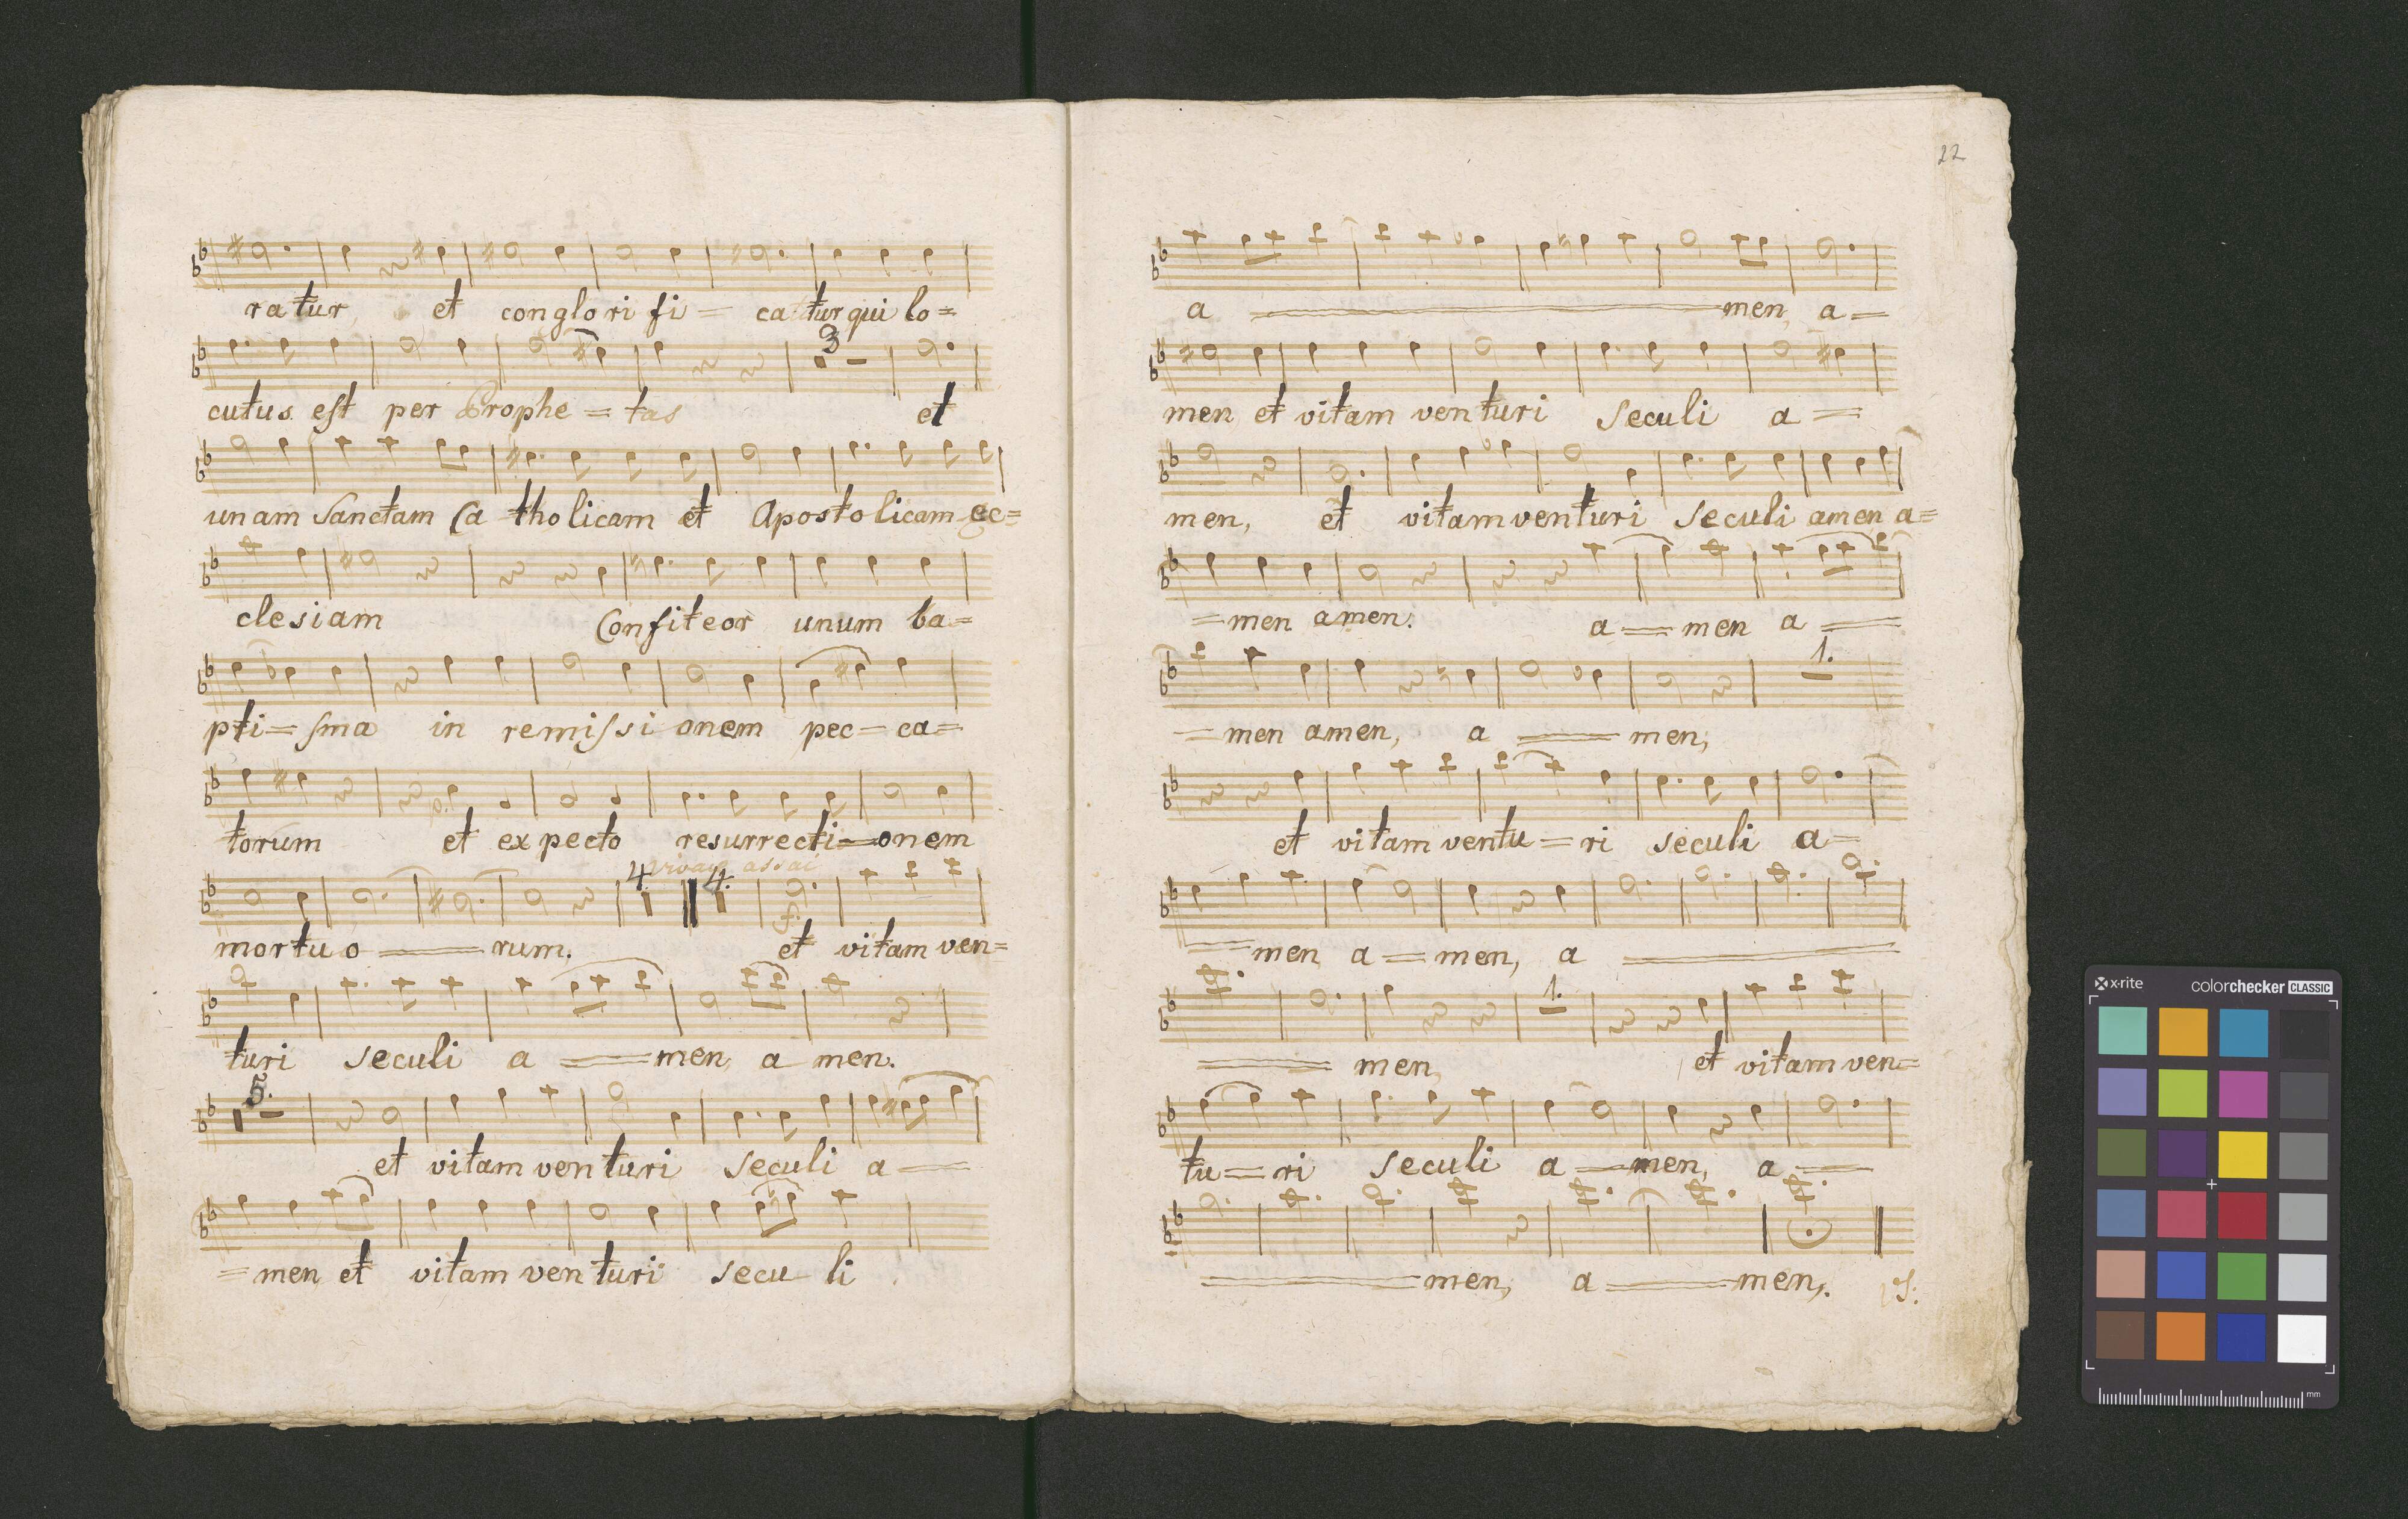 ratur et conglorifi = catur qui lo=
3
cutus est per Prophe = tas et
unam Sanctam Ca tholicam et Apostolicam ec=
clesiam Confiteor unum ba=
pti = sma in remissi onem pec = ca=
torum et expecto resurrecti = onem
4. vivace assai 4.
mortu o = rum. et vitam ven=
turi seculi a = men, a men.
5.
et vitam venturi seculi a =
= men, et vitam venturi secu li
22
a = men, a =
men et vitam venturi seculi a =
men, et vitam venturi seculi amen a=
= men amen. a = men a =
1.
= men amen, a = men,
et vitam ventu = ri seculi a=
= men a = men, a =
1.
= men, et vitam ven=
tu = ri seculi a = men, a =
= men, a = men.
x-rite colorchecker CLASSIC
mm